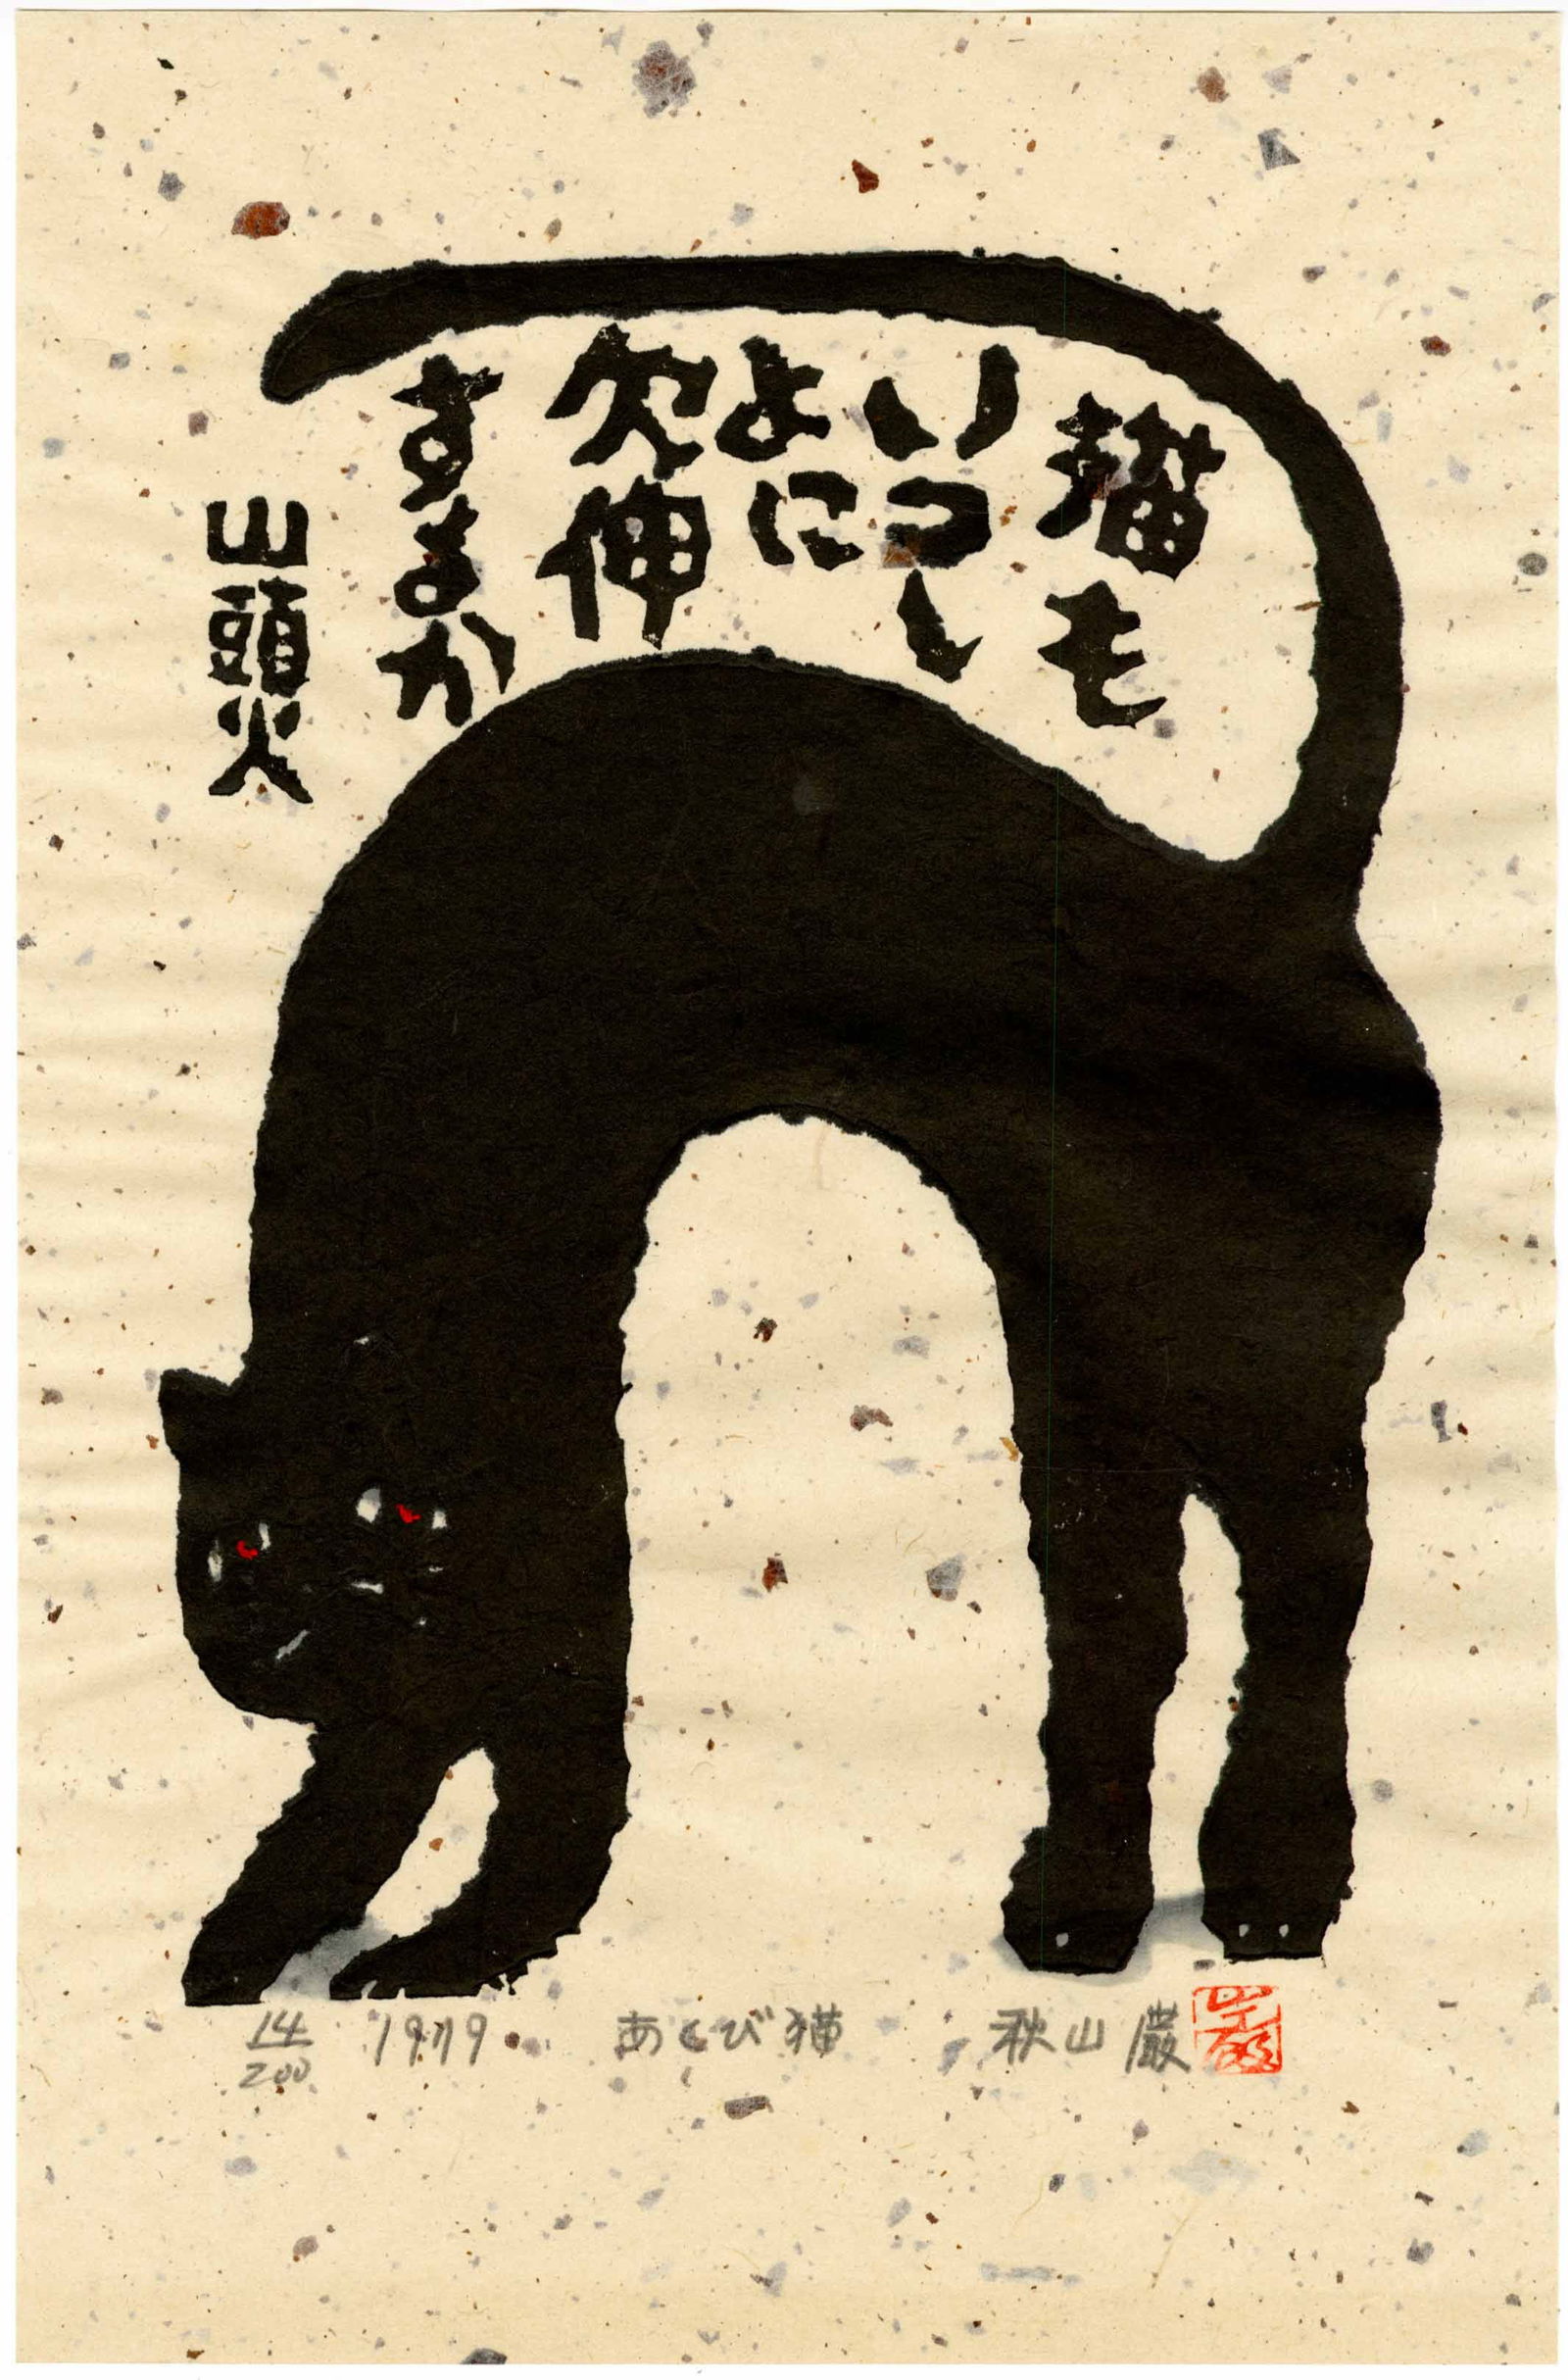 猫も
いつし
よに
欠伸
するか
山頭火
14/200 1979 あくび猫 秋山巌